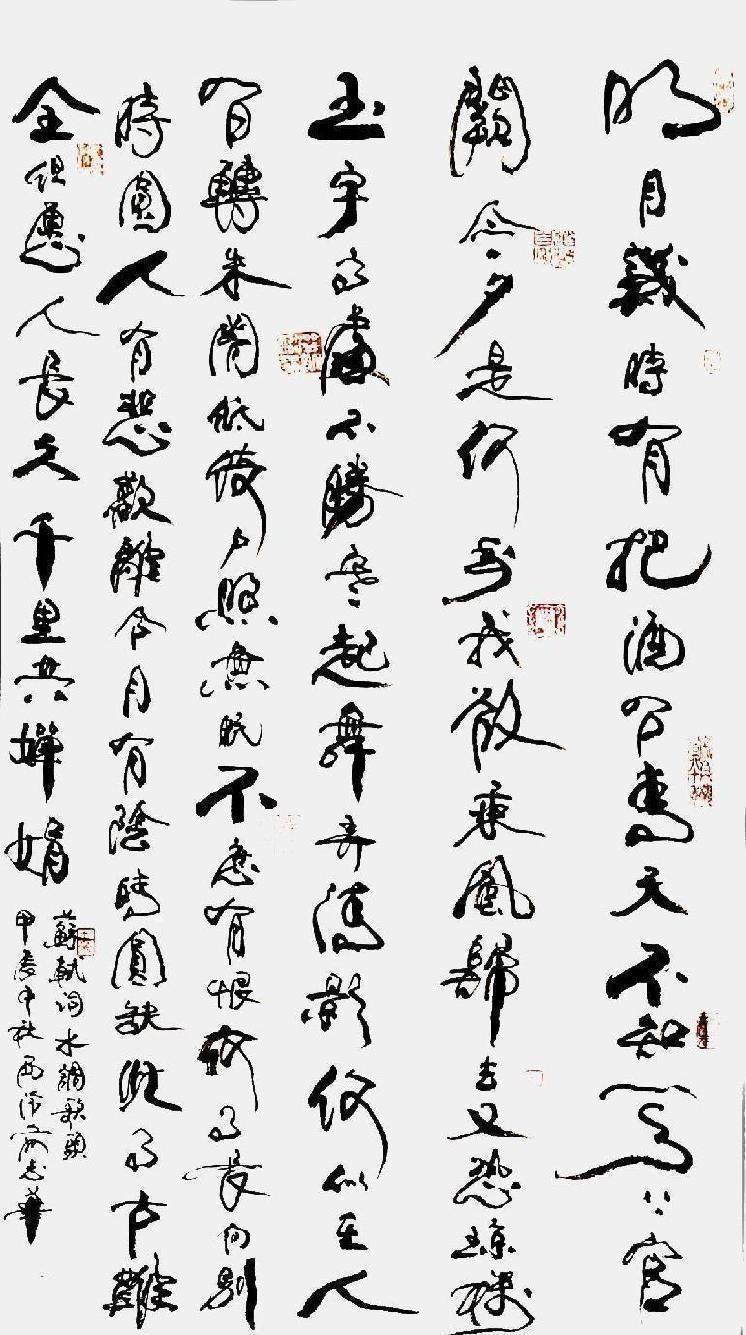 明月幾時有把酒問青天不知天上宫
闕今夕是何年我欲乘風歸去又恐瓊樓
玉宇高處不勝寒起舞弄清影何似在人
間轉朱閣低綺户照無眠不應有恨何事長向别
時圓人有悲歡離合月有陰晴圓缺此事古難
全但願人長久千里共嬋娟
蘇軾詞水調歌頭
甲辰中秋西志華